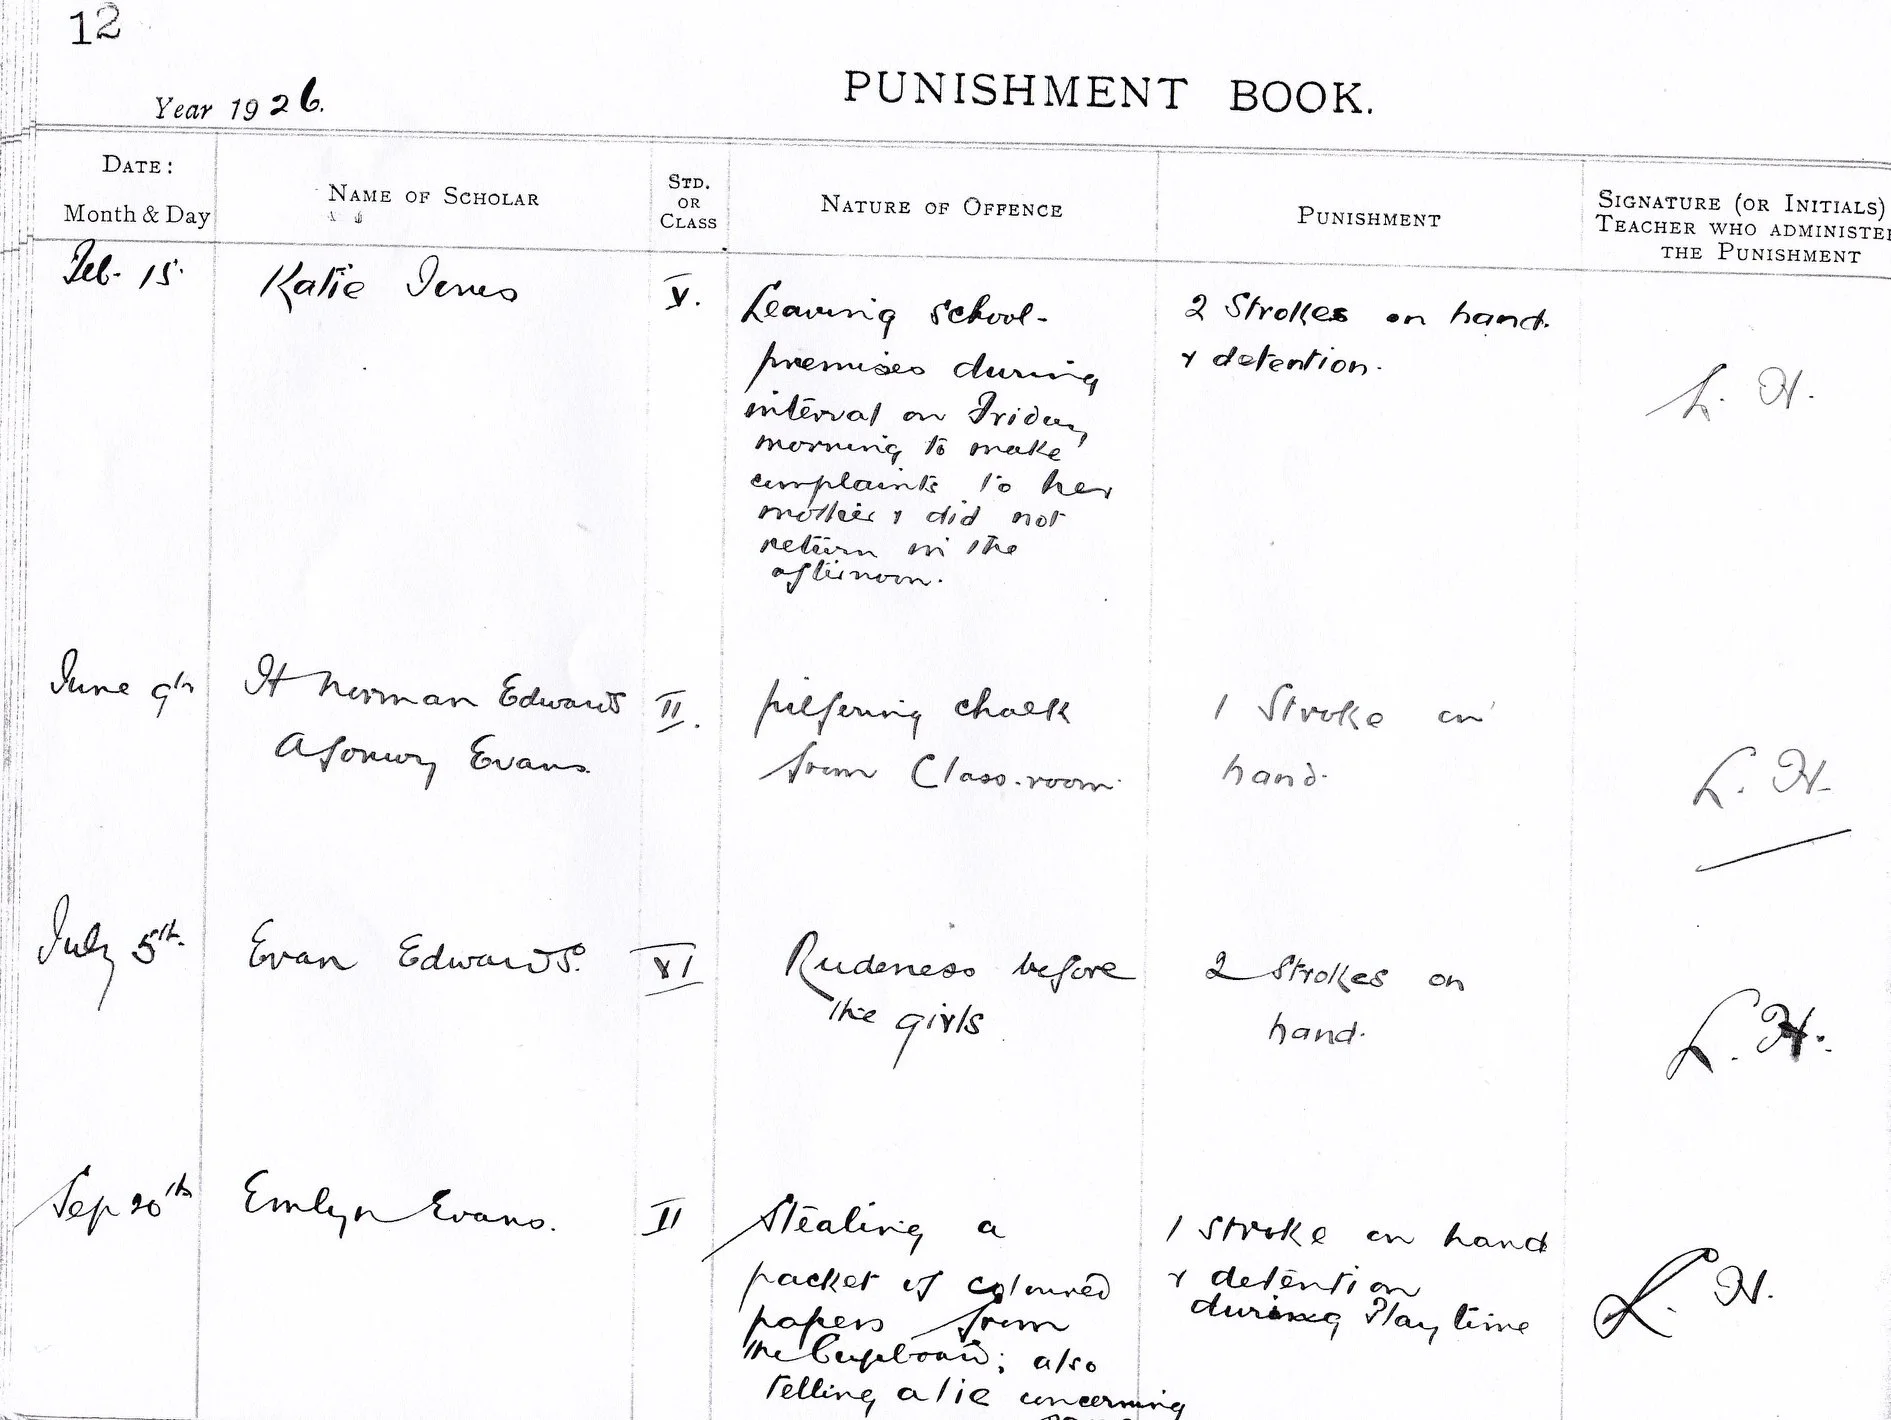 12
Year 1926.
PUNISHMENT BOOK.
DATE:
Month & Day
NAME OF SCHOLAR
STD.
OR
CLASS
NATURE OF OFFENCE
PUNISHMENT
SIGNATURE (OR INITIALS)
TEACHER WHO ADMINISTE
THE PUNISHMENT
Feb. 15.
Katie Jones
V.
Leaving school-
premises during
interval on Friday
morning to make
complaints to her
mother & did not
return in the
afternoon.
2 Strokes on hand.
& detention.
L. H.
June 9th
Norman Edwards
Evans.
II.
pilfering chalk
from Class-room.
1 Stroke on
hand.
L. H.
July 5th.
Evan Edwards.
VI
Rudeness before
the girls
2 Strokes on
hand.
L. H.
Sep 20th
Emlyn Evans.
II
Stealing a
packet of coloured
papers from
the Cupboard; also
telling a lie concerning
1 Stroke on hand
& detention
during Playtime
L. H.